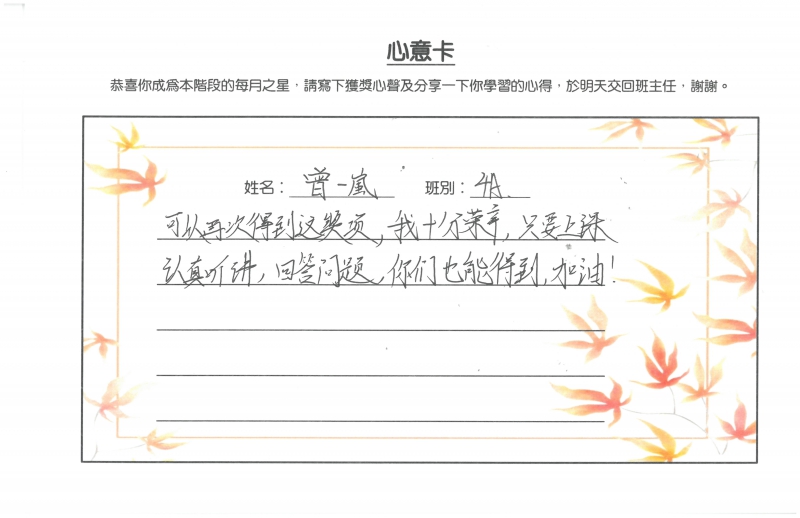 心意卡
恭喜你成為本階段的每月之星，請寫下獲獎心聲及分享一下你學習的心得，於明天交回班主任，謝謝。
姓名： 曾一嵐 班別： 4A
可以再次得到这奖项，我十分荣幸，只要上课
认真听讲，回答问题，你们也能得到，加油！